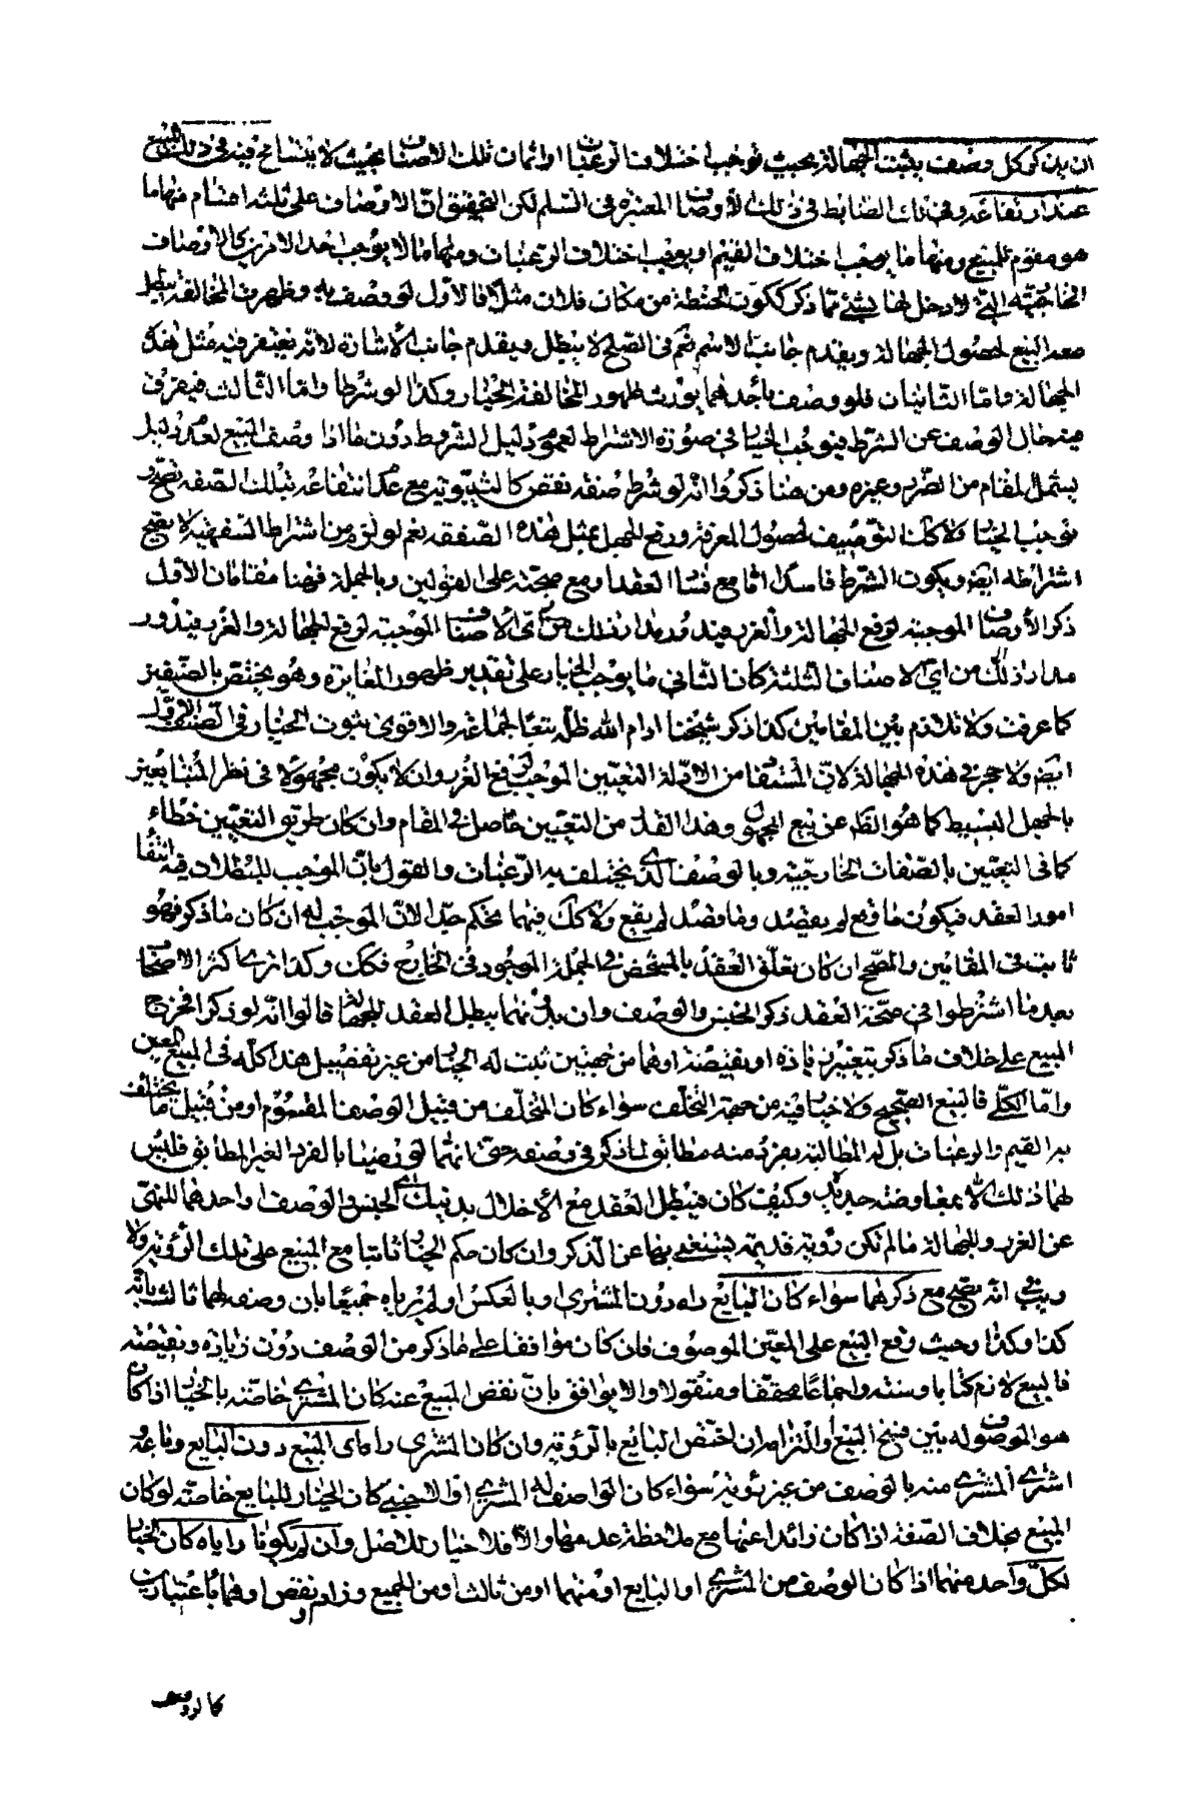 ان يذكر كل وصف يثبت الجهالة بحيث توجب اختلاف الرغبات او اثمان تلك الاصناف بحيث لا يتسامح فيه في ذلك البيع
عند ارتفاعه وفي ذلك الضابط في ذلك الأوصاف المعتبرة في السلم لكن التحقيق ان الاوصاف على ثلثه اقسام منها ما
هو مقوم للمبيع ومنها ما يوجب اختلاف القيم او يوجب اختلاف الرغبات ومنها ما لا يوجب احد الامرين كالاوصاف
الخارجيّة التي لا دخل لها بشئ ممّا ذكر ككون الحنطة من مكان فلان مثلا فالاول لو وصف به وظهرت المخالفة يبطل
معه البيع لحصول الجهالة ويقدم جانب الاسم نعم في الصلح لا يبطل ويقدم جانب الاشارة لانه يغتفر فيه مثل هذه
الجهالة وامّا الثانيان فلو وصف باحدهما يورث ظهور المخالفة الخيار وكذا لو شرط واما الثالث فيفترق
فيه حال الوصف عن الشرط فيوجب الخيار في صورة الاشتراط لعموم دليل الشروط دون ما اذا وصف المبيع لعدم دليل
يشمل المقام من الضرر وغيره ومن هنا ذكروا انه لو شرط صفة نقص كالثيبوبة مع عدم انتفاعه بتلك الصفة تصح و
توجب الخيار ولا كذلك التوصيف لحصول المعرفة ورفع الجهل بمثل هذه الصفة نعم لو لزم من اشتراطها السفهية لا يصح
اشتراطه ايض ويكون الشرط فاسدا امّا مع فساد العقد او مع صحته على القولين وبالجملة فهنا مقامان الاول
ذكر الأوصاف الموجبة لرفع الجهالة والغرر فيدور مدار ذلك من اى الاصناف الموجبة لرفع الجهالة والغرر فيدور
مدار ذلك من اى الاصناف الثلثة كان الثاني ما يوجب الخيار على تقدير ظهور المغايرة وهو يختص بالصنفين
كما عرفت ولا تلازم بين المقامين كذا ذكر شيخنا ادام الله ظله تبعا لجماعة والاقوى ثبوت الخيار في الصنف الاول
ايض ولا حجر في هذه الجهالة لان المستفاد من الادلة التعيين الموجب لرفع الغرر وان لا يكون مجهولا في نظر المتبايعين
بالجهل البسيط كما هو الظ عن بيع المجهول وهذا القدر من التعيين حاصل في المقام وان كان طريق التعيين خطاء
كما في التعيين بالصفات الخارجية وبالوصف الذى يختلف به الرغبات والقول بان الموجب للبطلان فيه انتفاء
امور العقد فيكون ما وقع لم يقصد وما قصد لم يقع ولا كك فيهما تحكم جدا لان الموجب له ان كان ما ذكر فهو
ثابت في المقامين والمصحح ان كان تعلق العقد بالمشخص في الجملة الموجود في الخارج فكك وكذا نرى اكثر الاصحاب
بعد ما اشترطوا في صحة العقد ذكر الجنس والوصف وان بدونهما يبطل العقد للجهالة قالوا انه لو ذكرا فخرج
المبيع على خلاف ما ذكر بتغيير زيادة او نقيصة او هما من جهتين ثبت له الخيار من غير تفصيل هذا كله في المبيع المعين
وامّا الكلّي فالبيع الصحيح ولا خيار فيه من جهة التخلف سواء كان التخلف من قبيل الوصف المقوم او من قبيل ما يختلف
به القيم والرغبات بل له المطالبة بفرد منه مطابق لما ذكر في وصفه حتى انهما لو رضيا بالفرد الغير المطابق فليس
لهما ذلك الا بمعاوضة جديدة وكيف كان فيبطل العقد مع الأخلال بذينك اى الجنس والوصف او احدهما للنهى
عن الغرر وللجهالة ما لم تكن رؤية قديمة يستغنى بها عن الذكر وان كان حكم الخيار ثابتا مع المبيع على تلك الرؤية ولا
ريب انه يصح مع ذكرهما سواء كان البايع راه دون المشترى او بالعكس او لم يرياه جميعا بان وصفه لهما ثالث بانّه
كذا وكذا وحيث وقع البيع على المعيّن الموصوف فان كان موافقا على ما ذكر من الوصف دون زيادة ونقيصة
فالبيع لازم كتابا وسنة واجماعا محققا ومنقولا والا يوافق بان نقص المبيع عنه كان المشترى خاصّة بالخيار اذا كان
هو الموصوف له بين فسخ البيع والتزامه ان اختص البايع بالرؤية وان كان المشترى راى المبيع دون البايع وباعه و
اشترى المشترى منه بالوصف من غير رؤية سواء كان الواصف له المشترى او الاجنبى كان الخيار للبايع خاصّة لو كان
المبيع بخلاف الصفة اذا كان زائدا عنها مع ملاحظة عدمها والا فلا خيار للاصل وان لم يكونا راياه كان الخيار
لكل واحد منهما اذا كان الوصف من المشترى او البايع او منهما او من ثالث او من الجميع وزاد ونقص او هما باعتبارين
كالو وصف